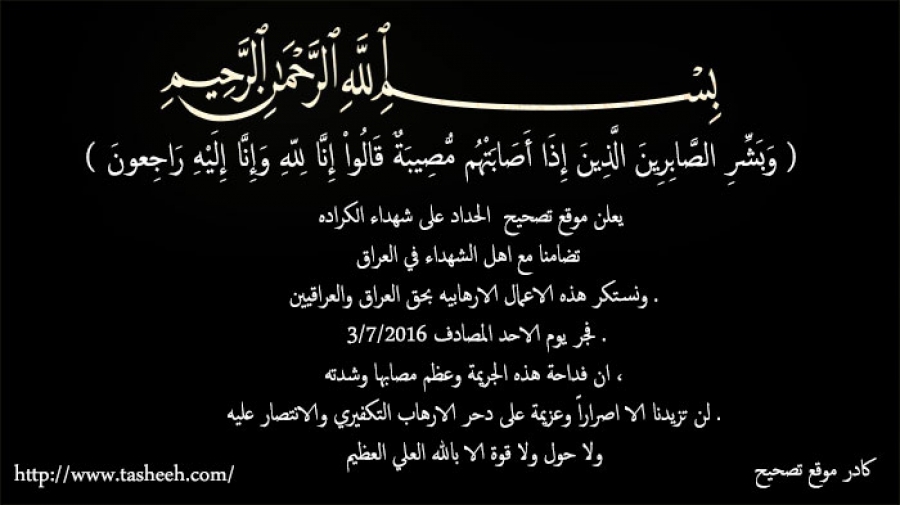 بِسْمِ ٱللَّهِ ٱلرَّحْمَٰنِ ٱلرَّحِيمِ
( وَبَشِّرِ الصَّابِرِينَ الَّذِينَ إِذَا أَصَابَتْهُم مُّصِيبَةٌ قَالُواْ إِنَّا لِلّهِ وَإِنَّا إِلَيْهِ رَاجِعونَ )
يعلن موقع تصحيح الحداد على شهداء الكراده
تضامنا مع اهل الشهداء في العراق
ونستكر هذه الاعمال الارهابيه بحق العراق والعراقيين .
فجر يوم الاحد المصادف 3/7/2016 .
ان فداحة هذه الجريمة وعظم مصابها وشدته ،
لن تزيدنا الا اصراراً وعزيمة على دحر الارهاب التكفيري والانتصار عليه .
ولا حول ولا قوة الا بالله العلي العظيم
كادر موقع تصحيح
http://www.tasheeh.com/